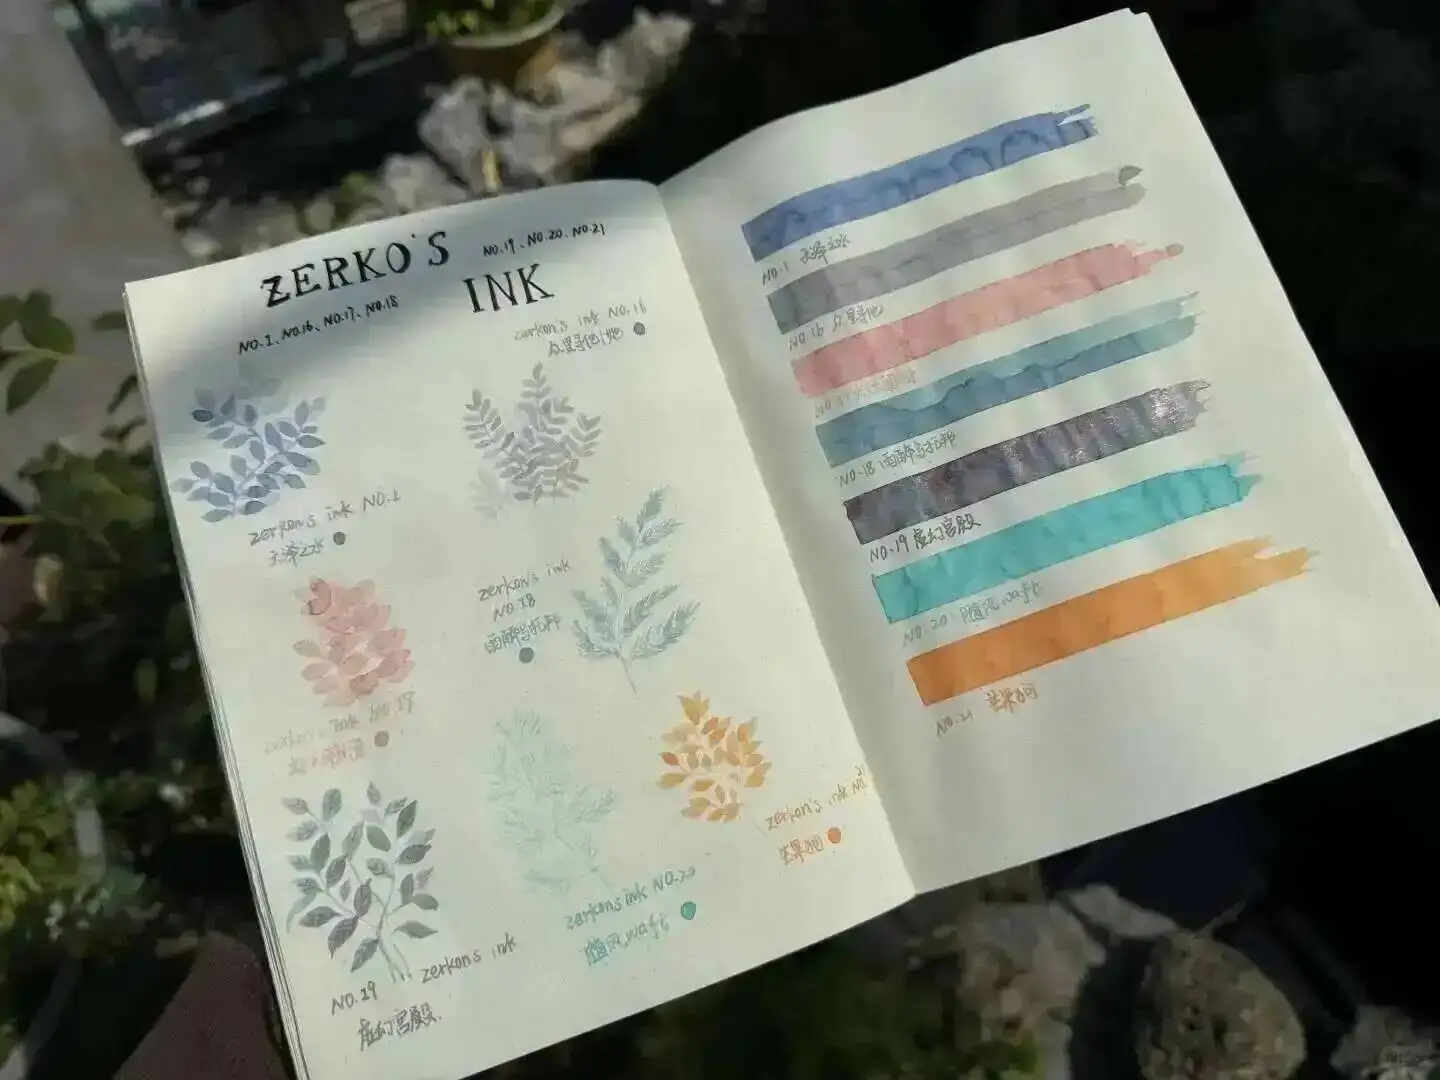 ZERKO'S
NO.19、NO.20、NO.21
INK
NO.1、NO.16、NO.17、NO.18
zerkon's ink NO.16
众里寻他/她
zerkon's ink NO.1
天泽之水
zerkon's ink
NO.18
雨醉乌托邦
zerkon's ink NO.17
zerkon's ink NO.21
芒果
zerkon's ink NO.20
随风 waft
zerkon's ink
NO.19
虚幻宫殿.
NO.1 天泽之水
NO.16 众里寻他
NO.18 雨醉乌托邦
NO.19 虚幻宫殿
NO.20 随风 waft
NO.21 芒果